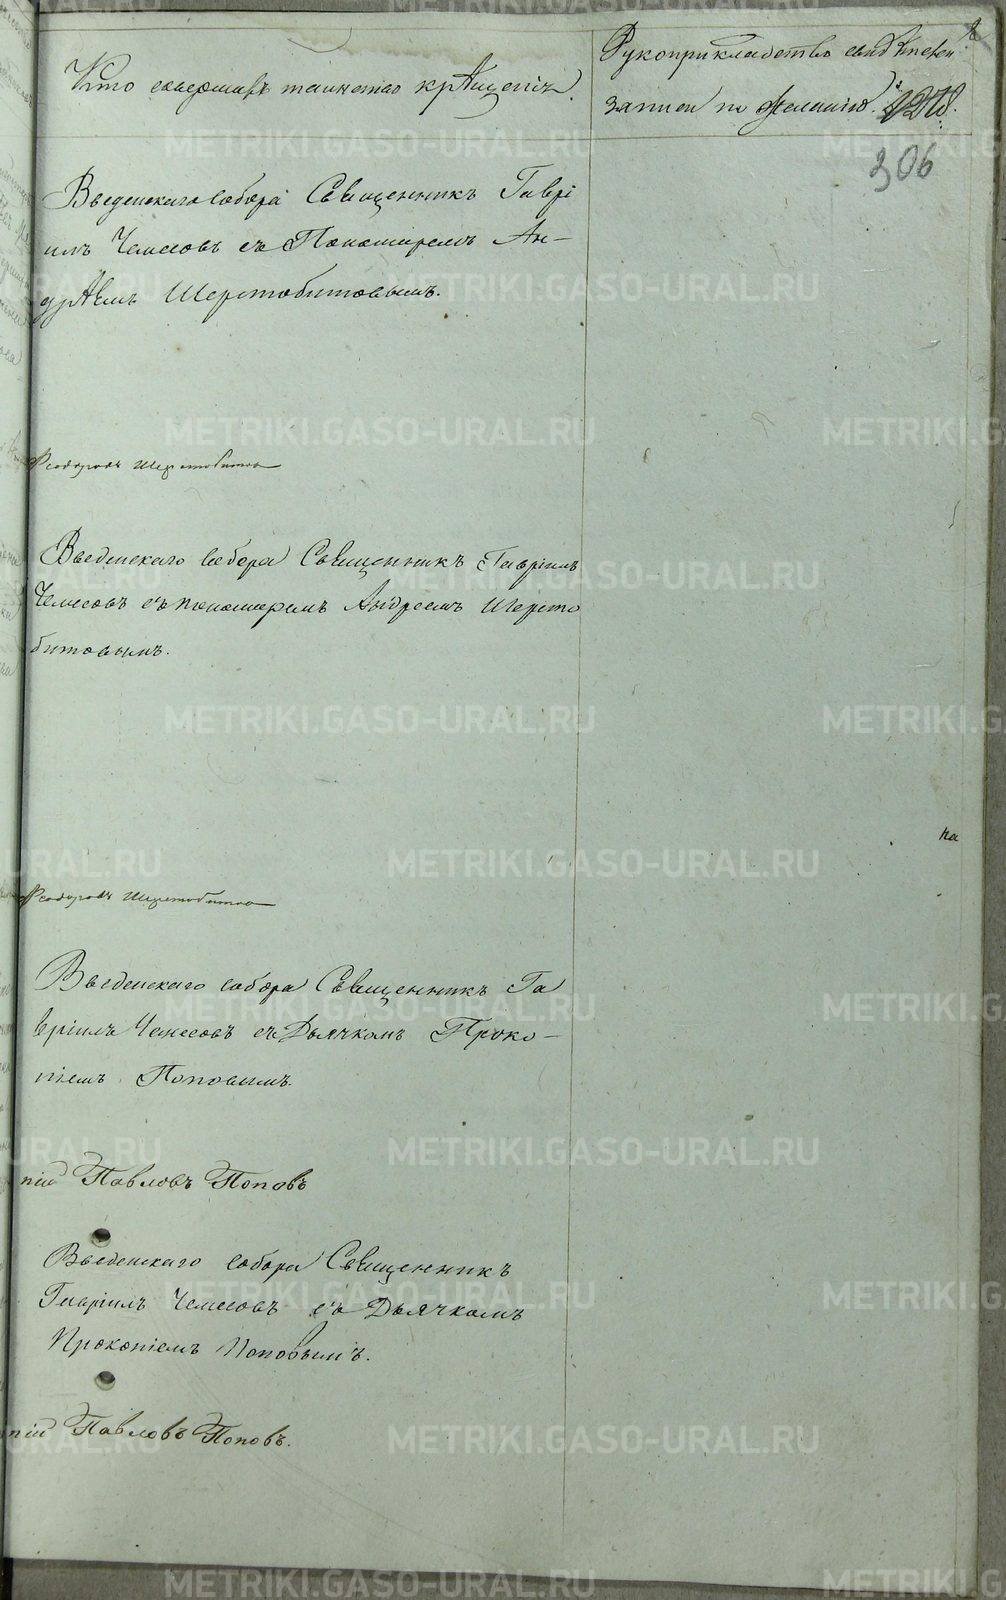 Кто совершалъ таинство крѣщенія.
Рукоприкладство свидѣтелей
записи по желанію.
1278.
306
Введенскаго собора Священникъ Гаврі
илъ Чемесовъ съ Пономаремъ Ан-
дрѣемъ Шерстобитовымъ.
Ѳеодоровъ Шерстобитовъ
Введенскаго собора Священникъ Гавріилъ
Чемесовъ съ пономаремъ Андреемъ Шерсто
битовымъ.
на
Ѳеодоровъ Шерстобитовъ
Введенскаго собора Священникъ Га
вріилъ Чемесовъ съ Дьячкомъ Проко-
піемъ Поповымъ.
пій Павловъ Поповъ
Введенскаго собора Священникъ
Гавріилъ Чемесовъ съ Дьячкомъ
Прокопіемъ Поповымъ.
пій Павловъ Поповъ.
METRIKI.GASO-URAL.RU